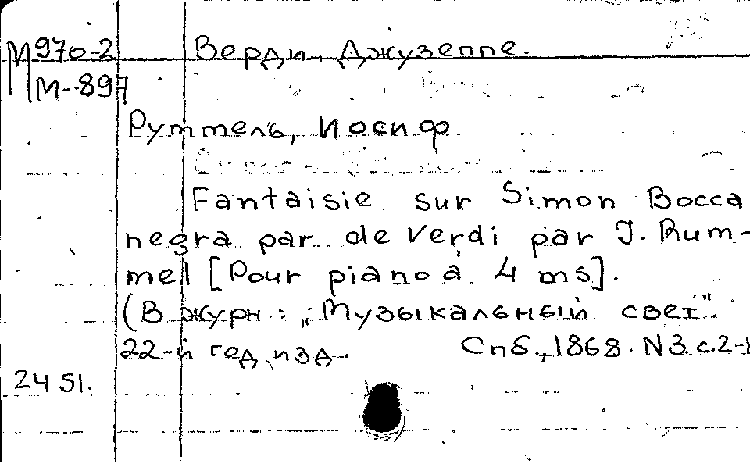 М970-2 Верди, Джузеппе.
М-897
Руттель, Иосиф
Fantaisie sur Simon Bocca
negra par de Verdi par J. Rum-
mel [Pour piano à 4 ms].
(В журн: „Музыкальный свет".
22-й год изд. Спб., 1868. N3 с.2-
2451.